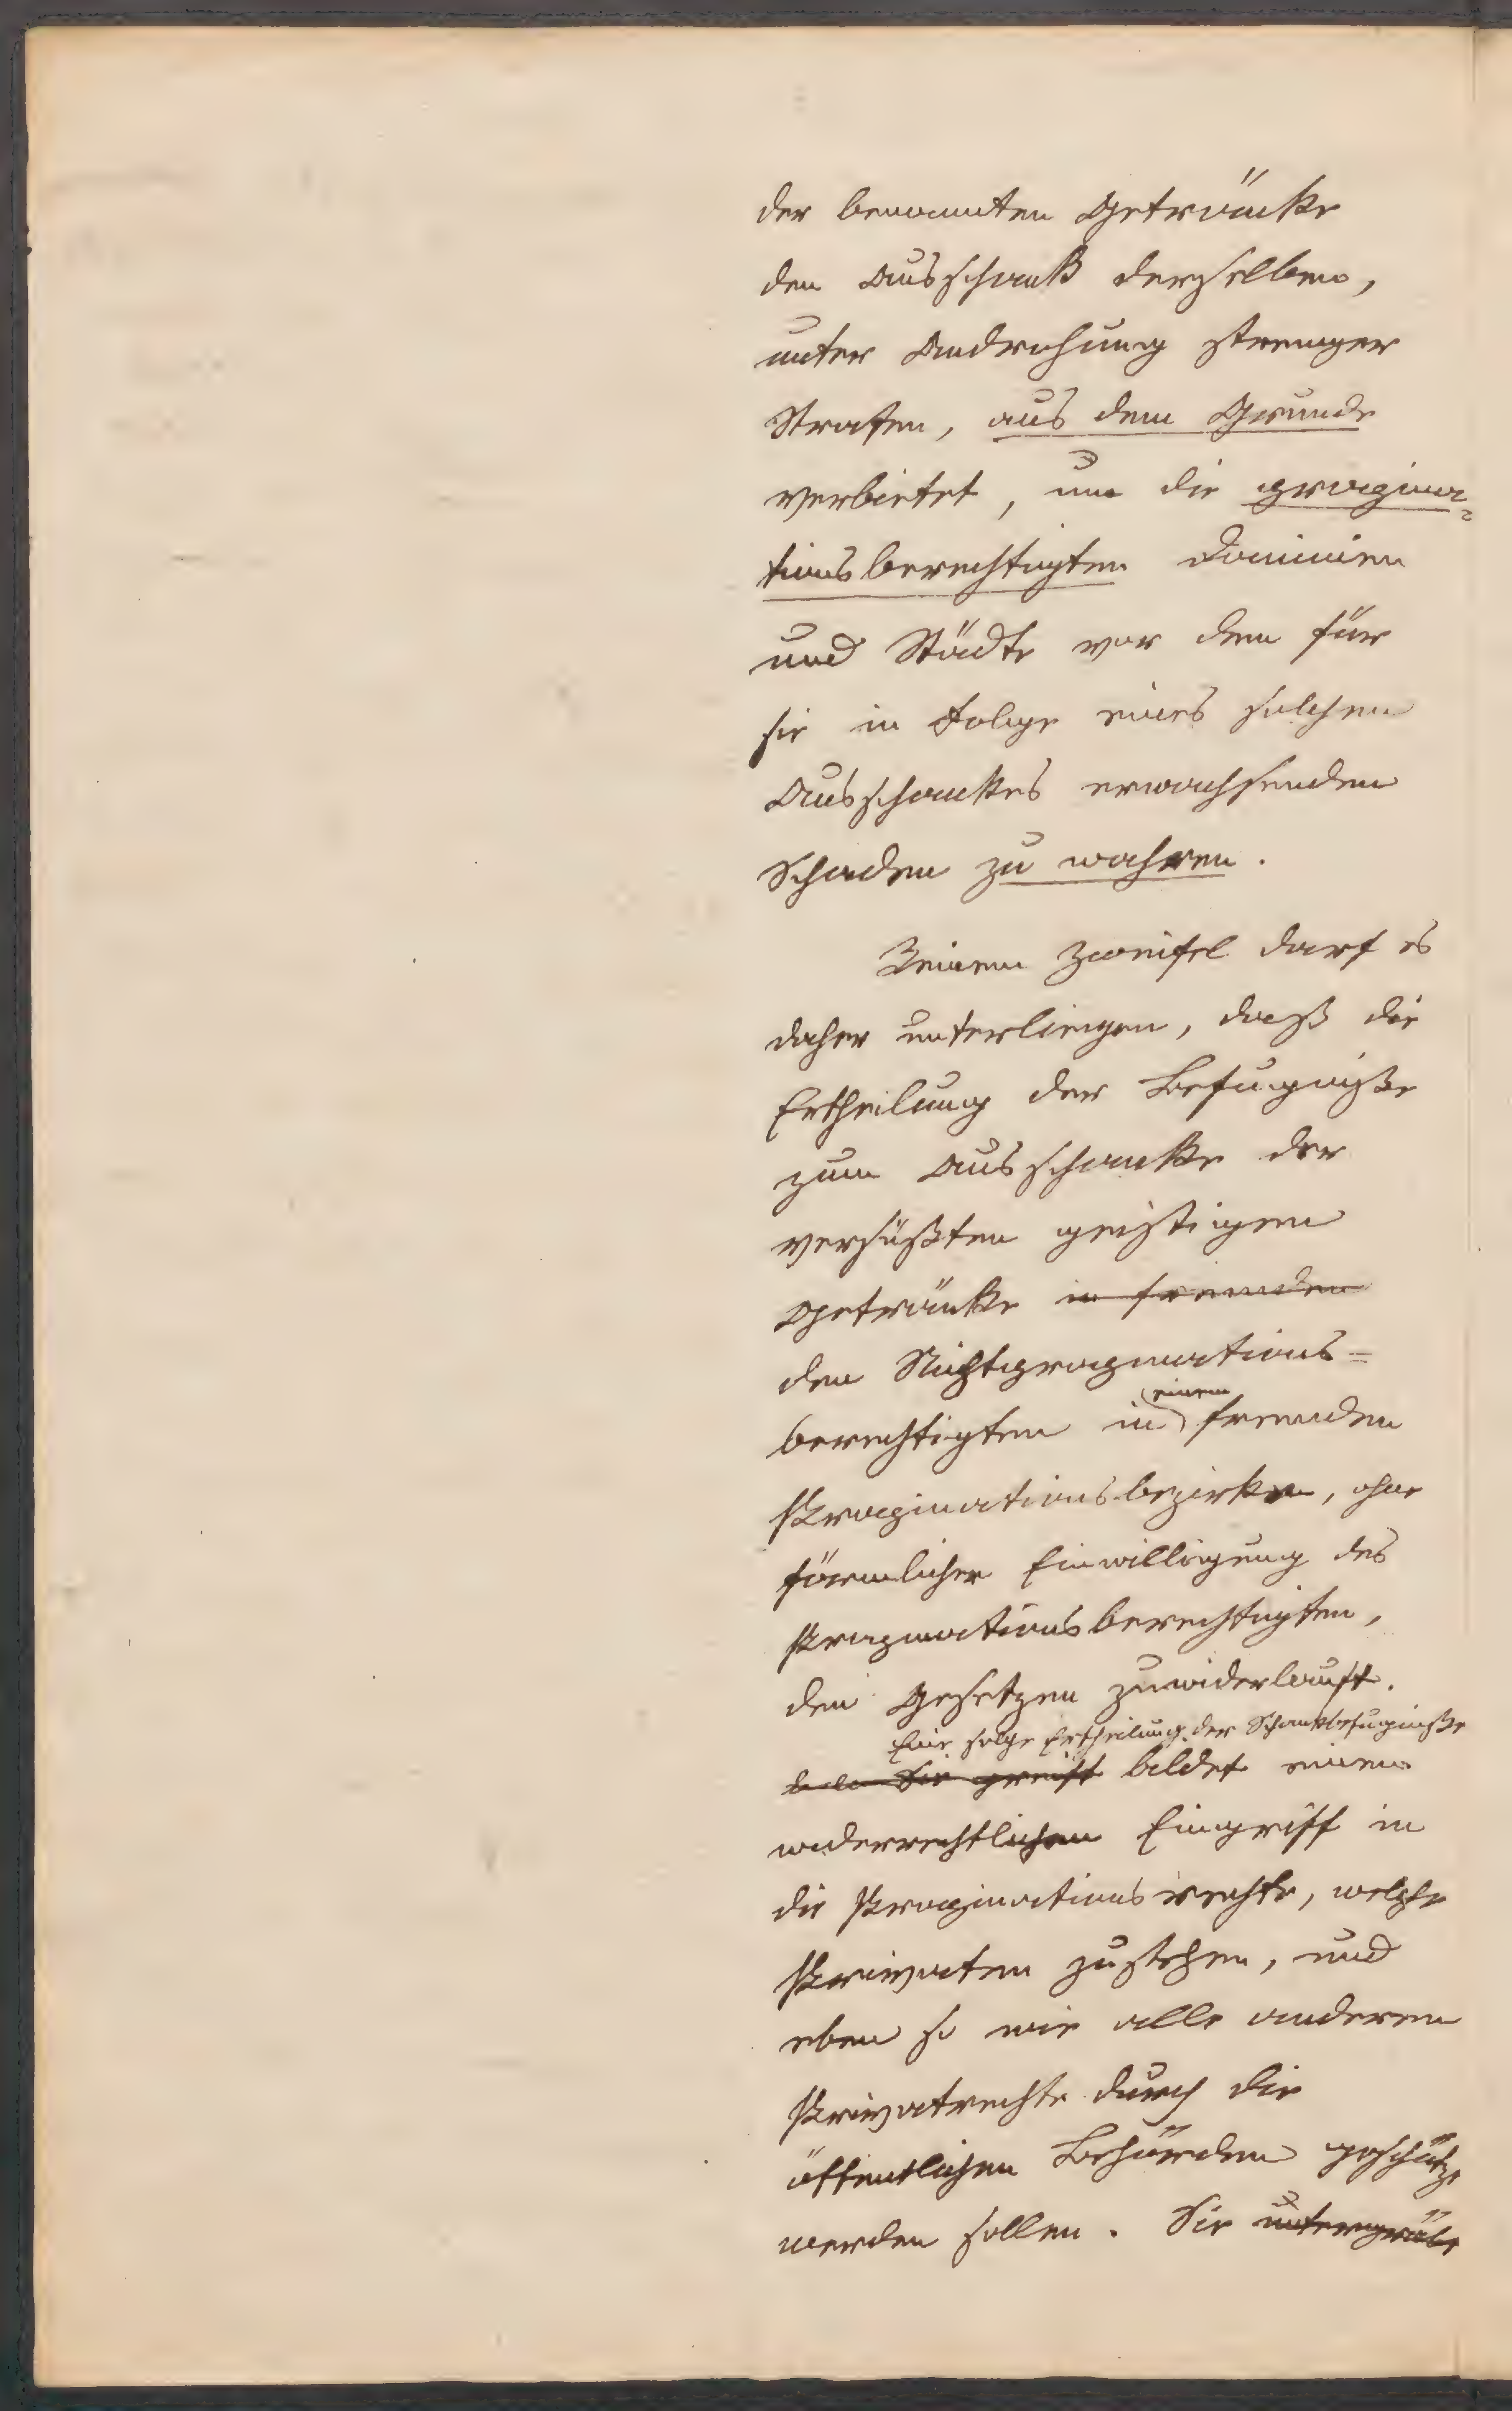 der benannten Getränke
den Ausschank derselben,
unter Androhung strenger
Strafen, aus dem Grunde
verbietet, um die propina-
tionsberechtigten Dominien
und Städte vor dem für
sie in Folge eines solchen
Ausschankes erwachsenden
Schaden zu wahren.
Keinem Zweifel darf es
daher unterliegen, daß die
Ertheilung der Befugniße
zum Ausschanke der
versüßten geistigen
Getränke in fremden
den Nichtpropinations=
berechtigten in einem fremden
Propinationsbezirke, ohne
förmlicher Einwilligung des
Propinationsberechtigten,
den Gesetzen zuwiderlauft.
Eine solche Ertheilung der Schankbefugniße
Sie greift bildet einen
widerrechtlichen Eingriff in
die Propinationsrechte, welche
Privaten zustehen, und
eben so wie alle anderen
Privatrechte durch die
öffentlichen Behörden geschützt
werden sollen. Sie untergräbt